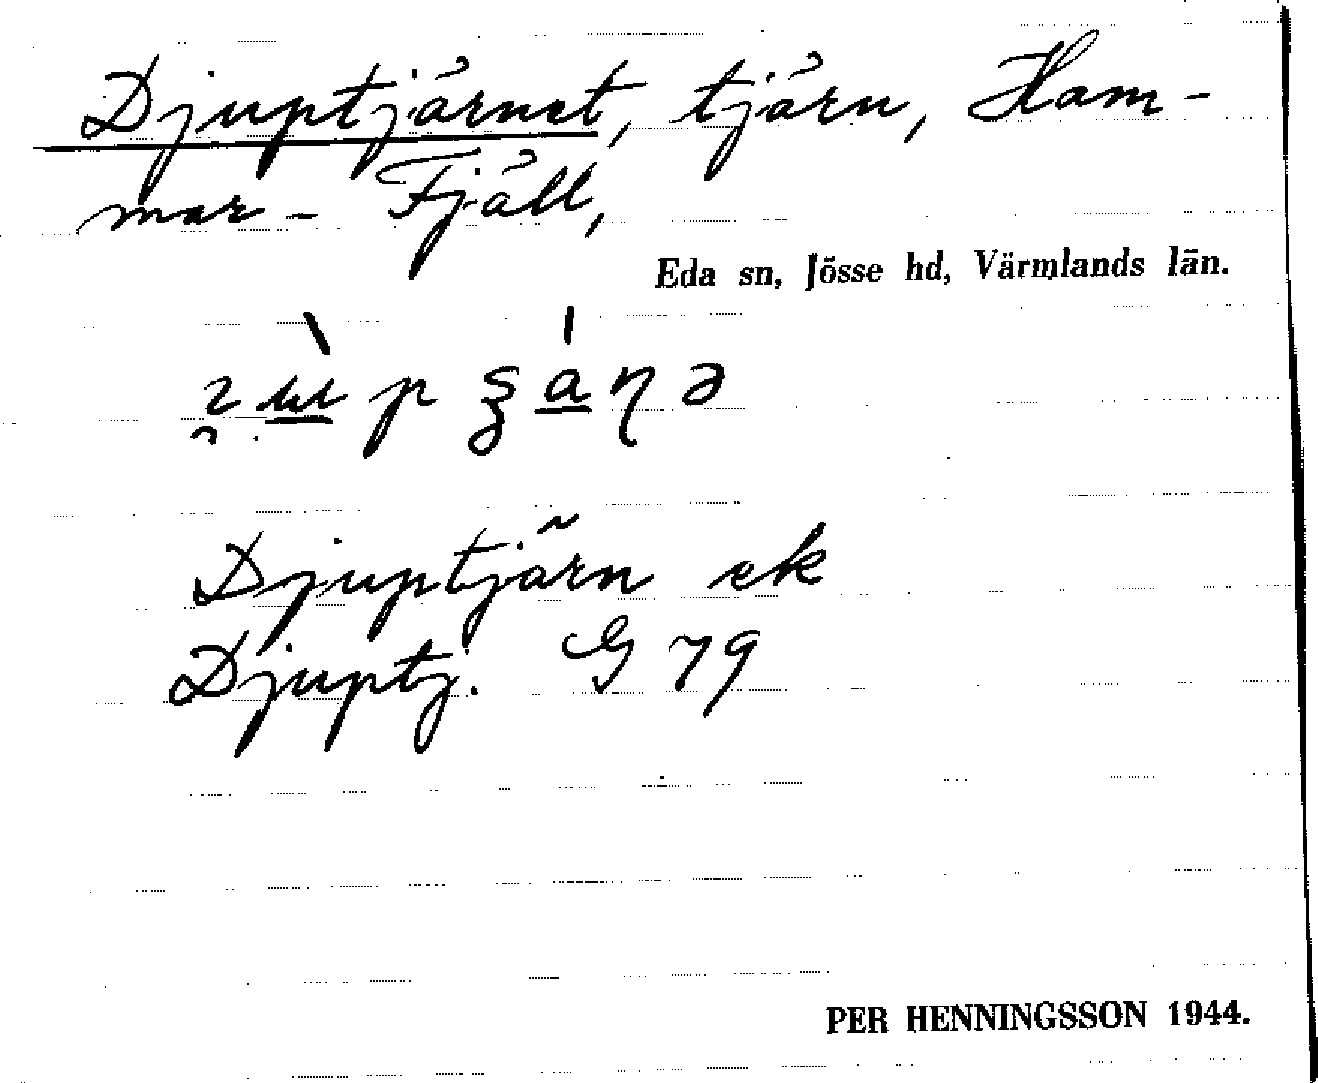 Djuptjärnet, tjärn, Ham-
mar - Fjäll,
Eda sn, Jösse hd, Värmlands län.
Djuptjärn ek
Djuptj. G 79
PER HENNINGSSON 1944.